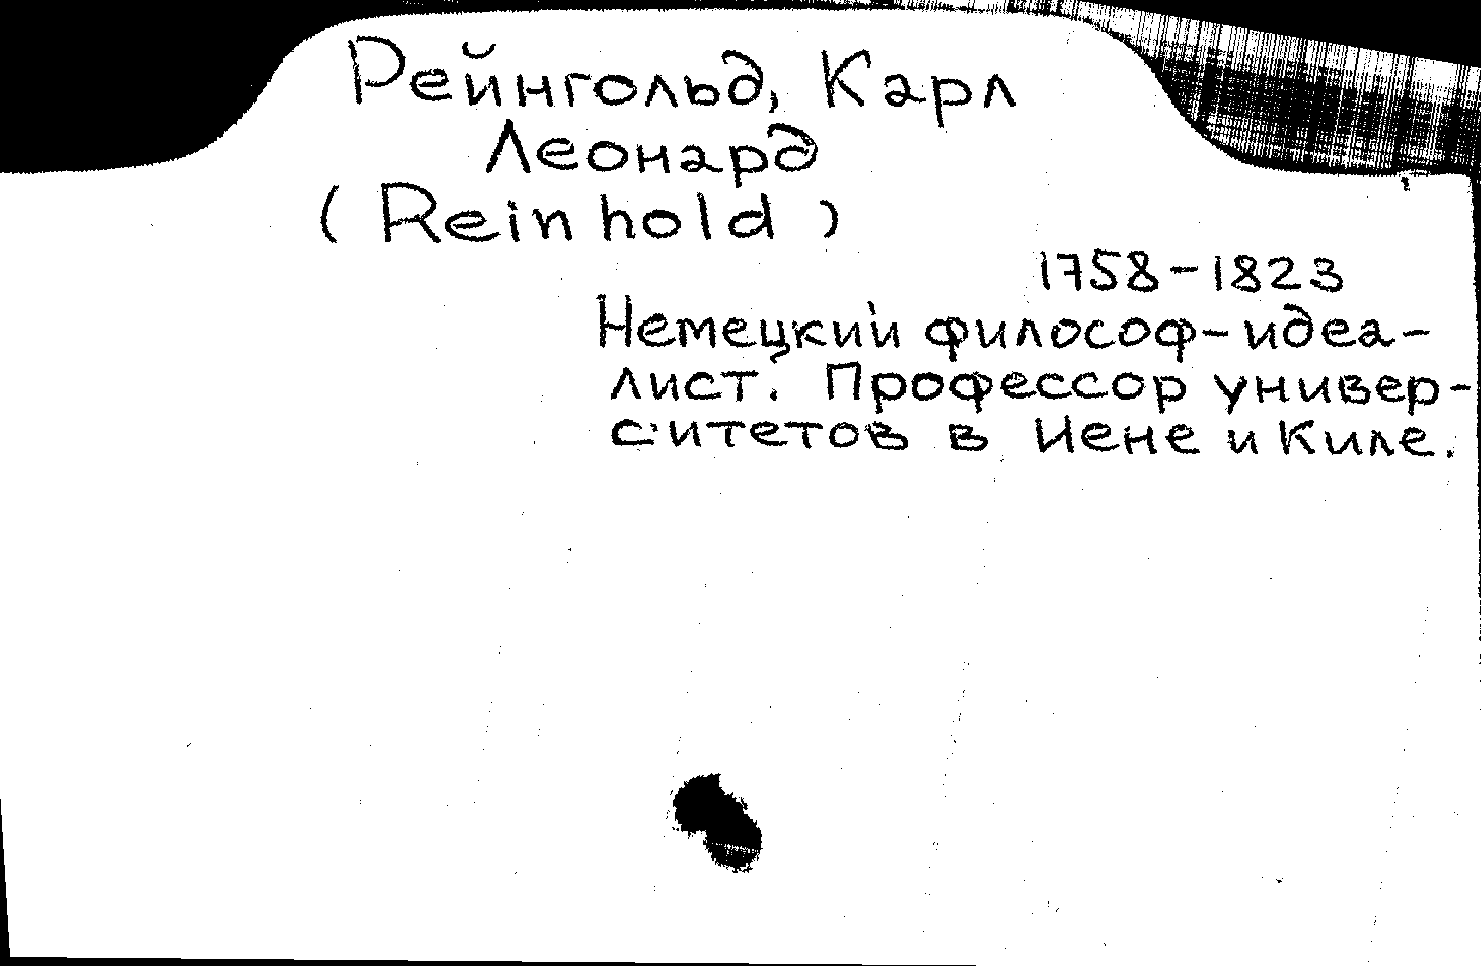 Рейнгольд, Карл
Леонард
(Reinhold)
1758-1823
Немецкий философ-идеа-
лист. Профессор универ-
ситетов в Иене и Киле.